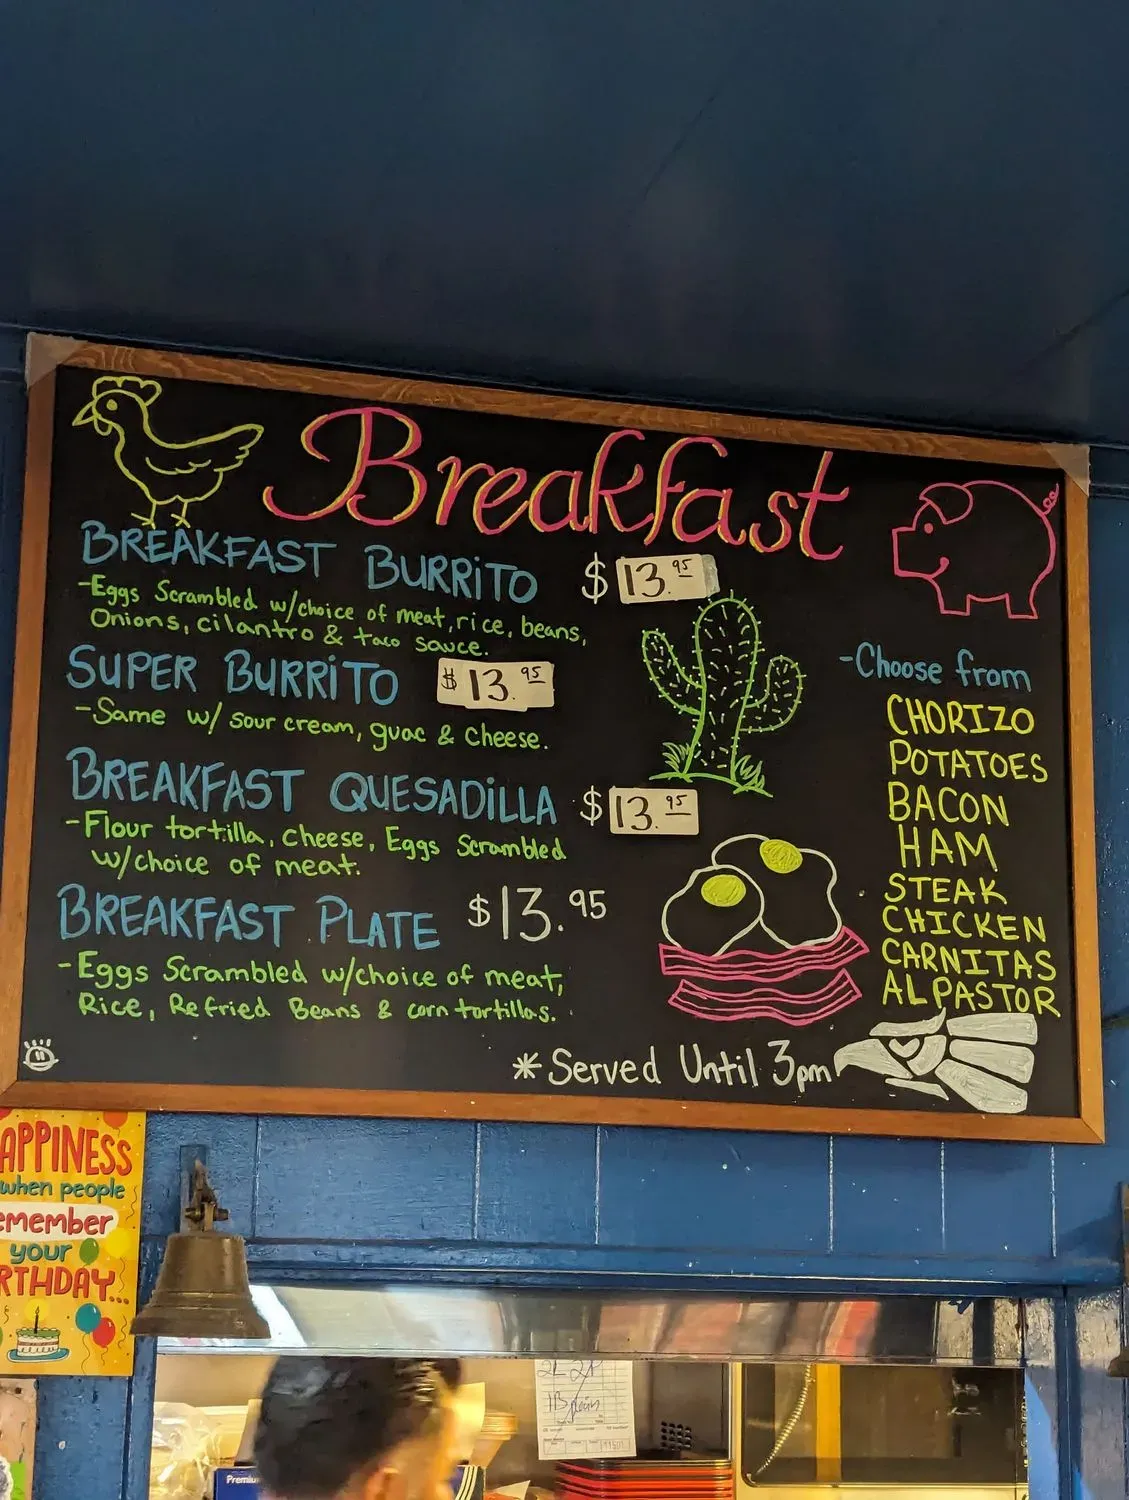 Breakfast
BREAKFAST BURRiTO $ 13.95
-Eggs Scrambled w/choice of meat, rice, beans,
Onions, cilantro & taco sauce.
SUPER BURRiTO $ 13.95
-Same w/ sour cream, guac & cheese.
BREAKFAST QUESADiLLA $ 13.95
-Flour tortilla, cheese, Eggs Scrambled
w/choice of meat.
BREAKFAST PLATE $13.95
-Eggs Scrambled w/choice of meat,
Rice, Refried Beans & corn tortillas.
-Choose from
CHORIZO
POTATOES
BACON
HAM
STEAK
CHICKEN
CARNITAS
AL PASTOR
*Served Until 3pm
APPINESS
when people
emember
your
RTHDAY...
Premiu